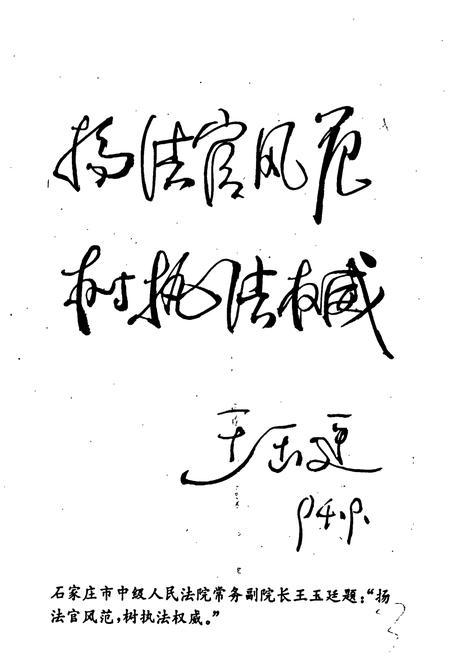 扬法官风范
树执法权威
王玉廷
94.9.
石家庄市中级人民法院常务副院长王玉廷题：“扬
法官风范，树执法权威。”